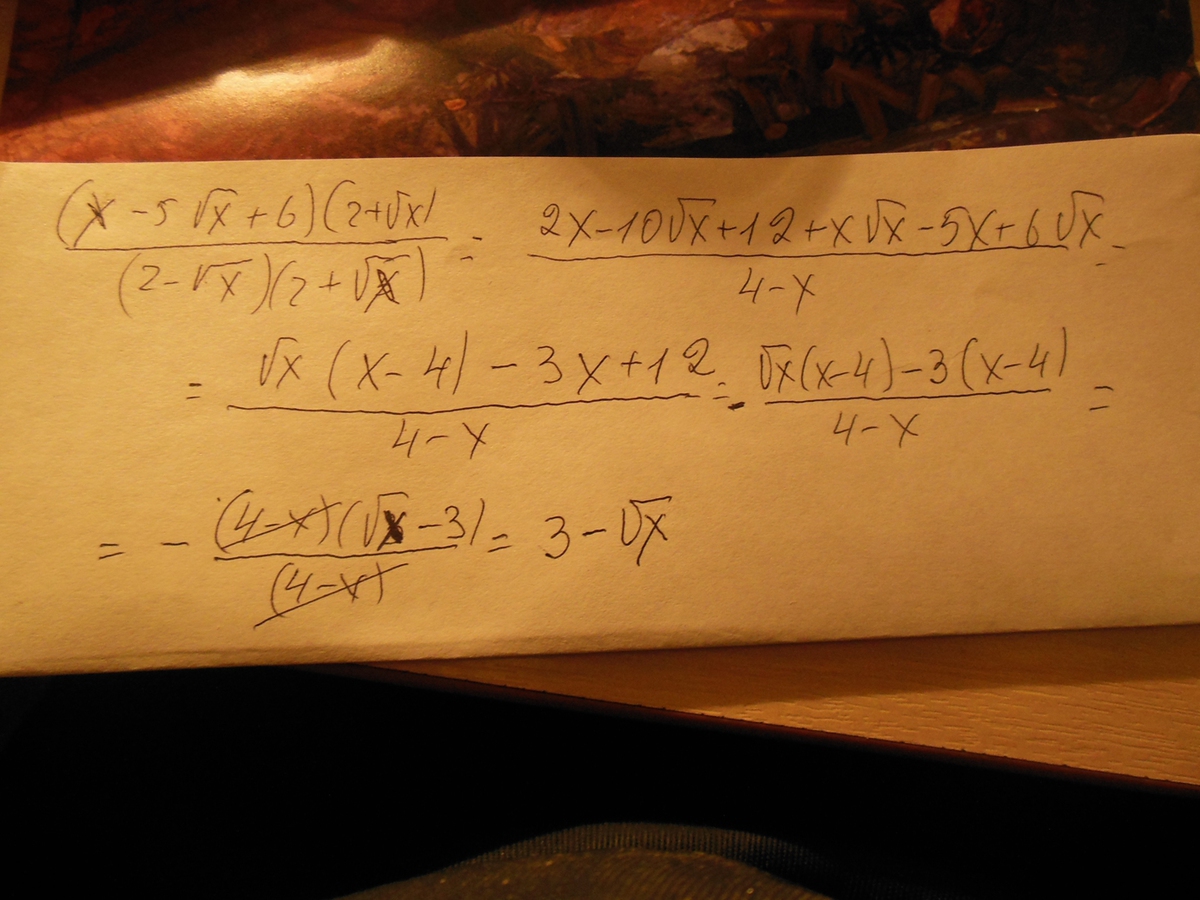 (x - 5√x + 6)(2+√x) / (2-√x)(2+√x) = 2x-10√x+12+x√x-5x+6√x / 4-x =
= √x (x-4) - 3x+12 / 4-x = √x(x-4)-3(x-4) / 4-x =
= - (4-x)(√x-3) / (4-x) = 3-√x